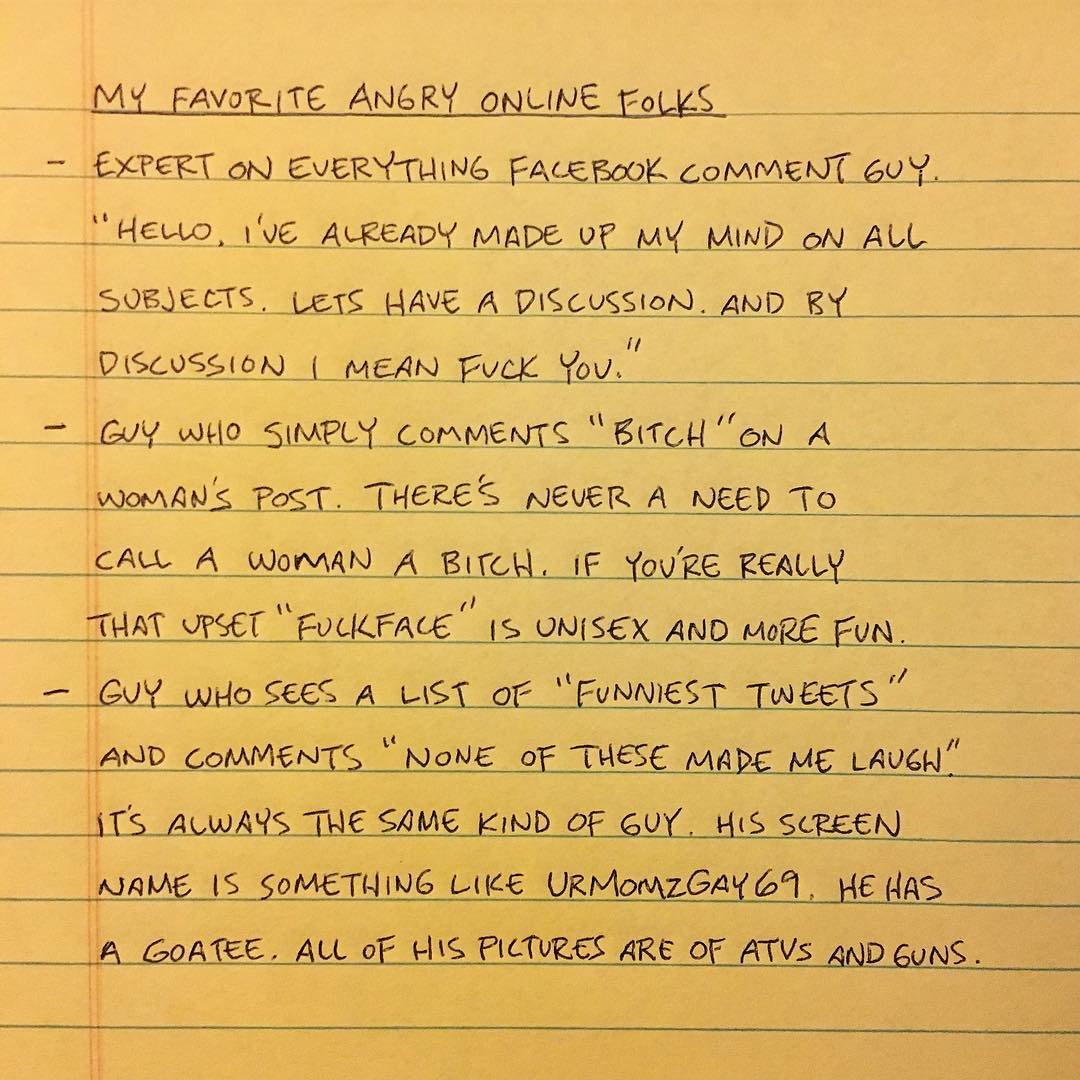 MY FAVORITE ANGRY ONLINE FOLKS
- EXPERT ON EVERYTHING FACEBOOK COMMENT GUY.
"HELLO, I'VE ALREADY MADE UP MY MIND ON ALL
SUBJECTS. LETS HAVE A DISCUSSION. AND BY
DISCUSSION I MEAN FUCK YOU."
- GUY WHO SIMPLY COMMENTS "BITCH" ON A
WOMAN'S POST. THERE'S NEVER A NEED TO
CALL A WOMAN A BITCH. IF YOU'RE REALLY
THAT UPSET "FUCKFACE" IS UNISEX AND MORE FUN.
- GUY WHO SEES A LIST OF "FUNNIEST TWEETS"
AND COMMENTS "NONE OF THESE MADE ME LAUGH."
IT'S ALWAYS THE SAME KIND OF GUY. HIS SCREEN
NAME IS SOMETHING LIKE URMOMZGAY69. HE HAS
A GOATEE. ALL OF HIS PICTURES ARE OF ATVS AND GUNS.